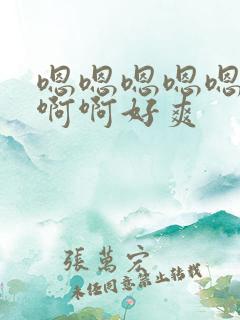 嗯嗯嗯嗯嗯
啊啊好爽
張萬宏
未经同意禁止转载